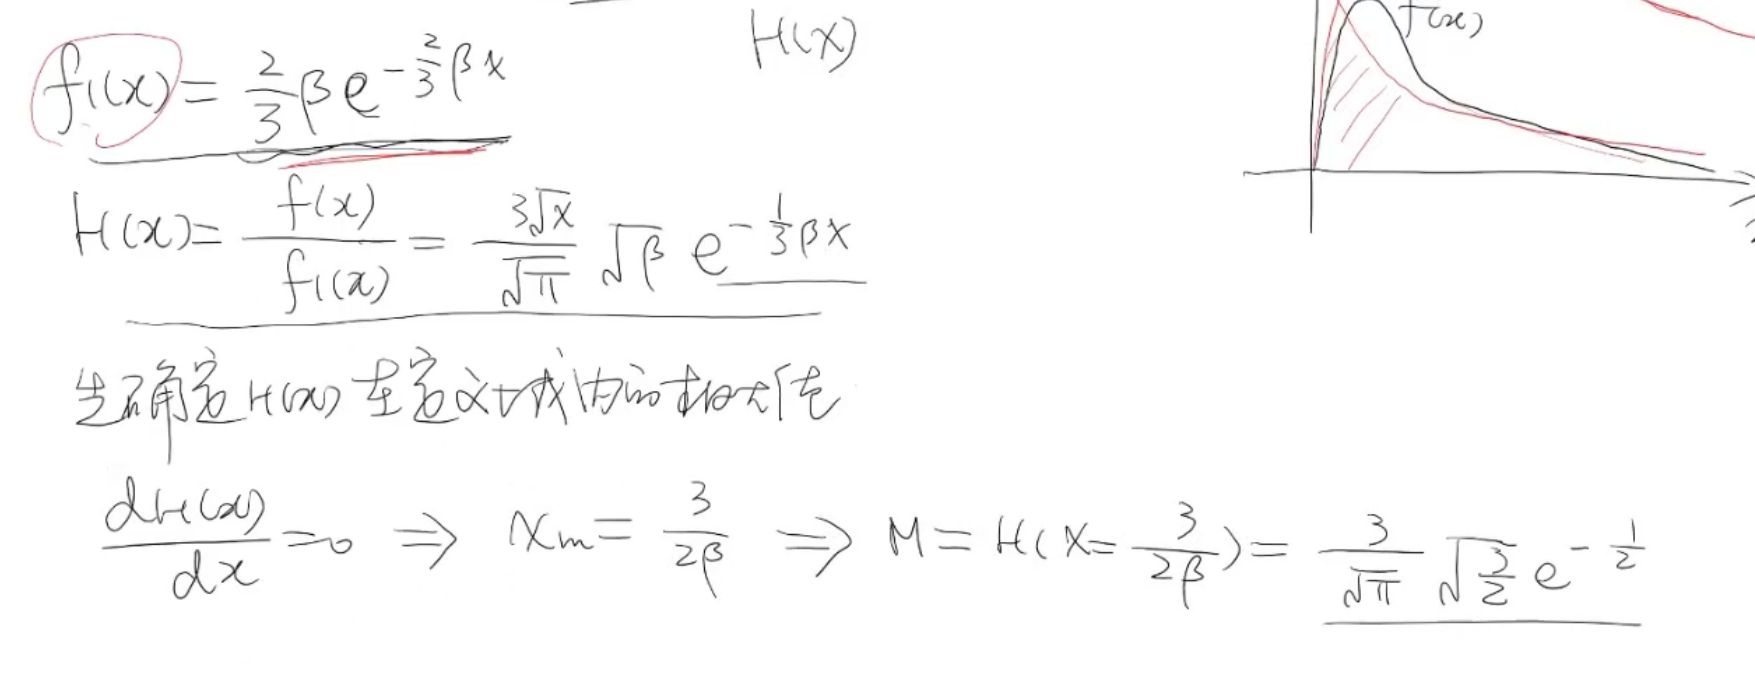 H(x)
f(x)
f₁(x) = \frac{2}{3} β e^{-\frac{2}{3}βx}
H(x) = \frac{f(x)}{f₁(x)} = \frac{3\sqrt{x}}{\sqrt{π}} \sqrt{β} e^{-\frac{1}{3}βx}
先确定H(x)在定义域内的极大值
\frac{dH(x)}{dx} = 0 ⇒ x_m = \frac{3}{2β} ⇒ M = H(x = \frac{3}{2β}) = \frac{3}{\sqrt{π}} \sqrt{\frac{3}{2}} e^{-\frac{1}{2}}